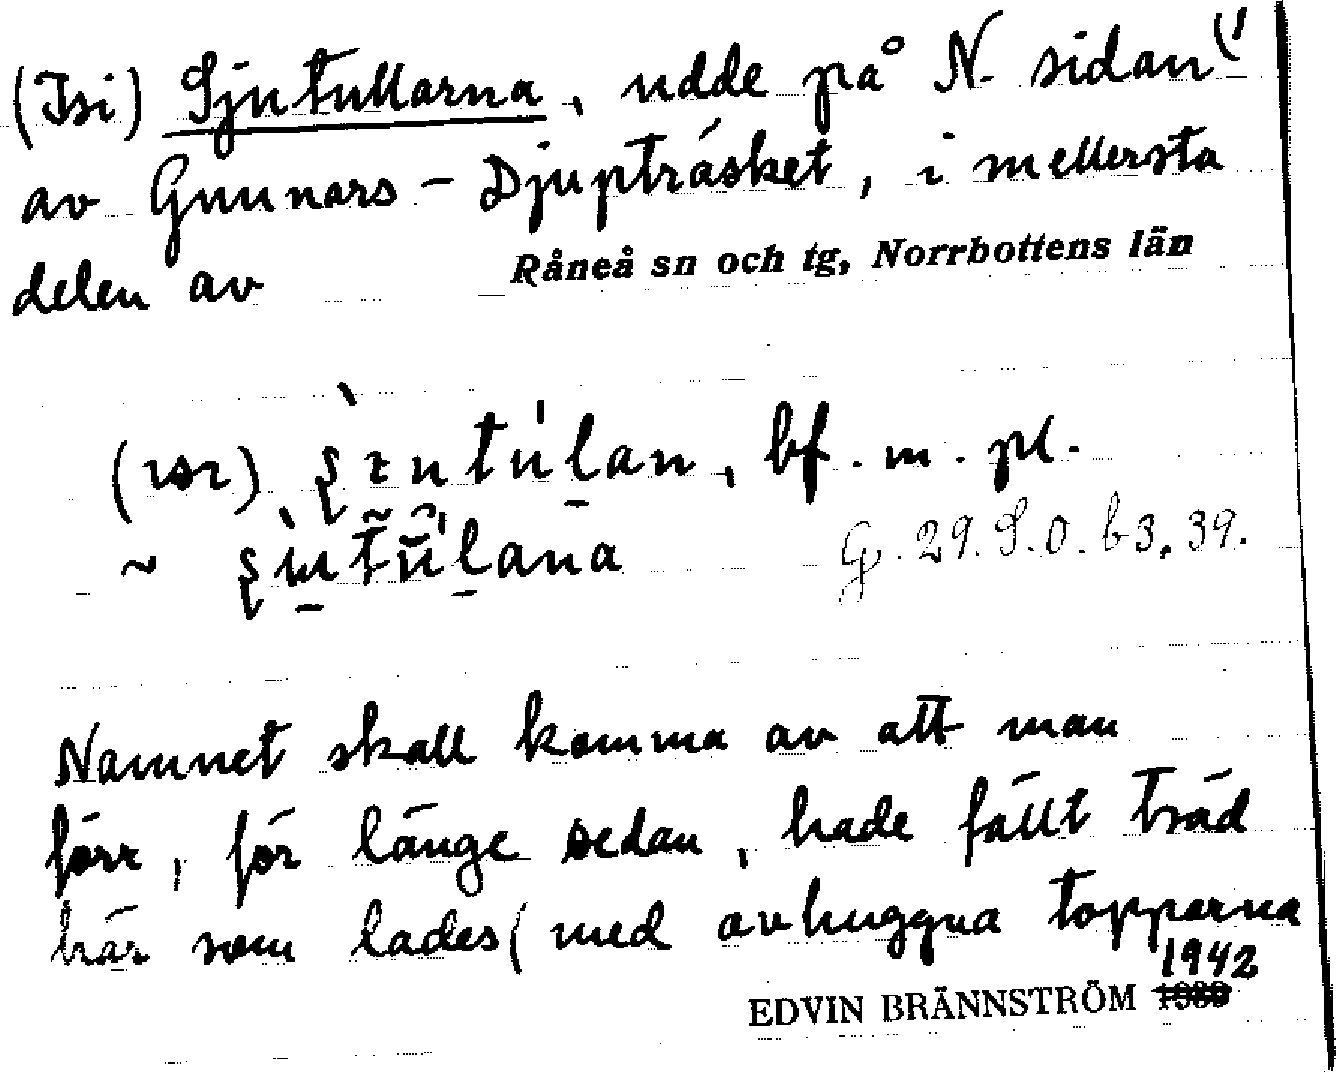 (Isi) Sjutullarna, udde på N. sidan (1
av Gunnars-Djupträsket, i mellersta
delen av Råneå sn och tg, Norrbottens län
bf. m. pl.
~
G. 29. S.O. b3, 39.
Namnet skall komma av att man
förr, för länge sedan, hade fällt träd
här som lades (med avhuggna topparna
1942
EDVIN BRÄNNSTRÖM